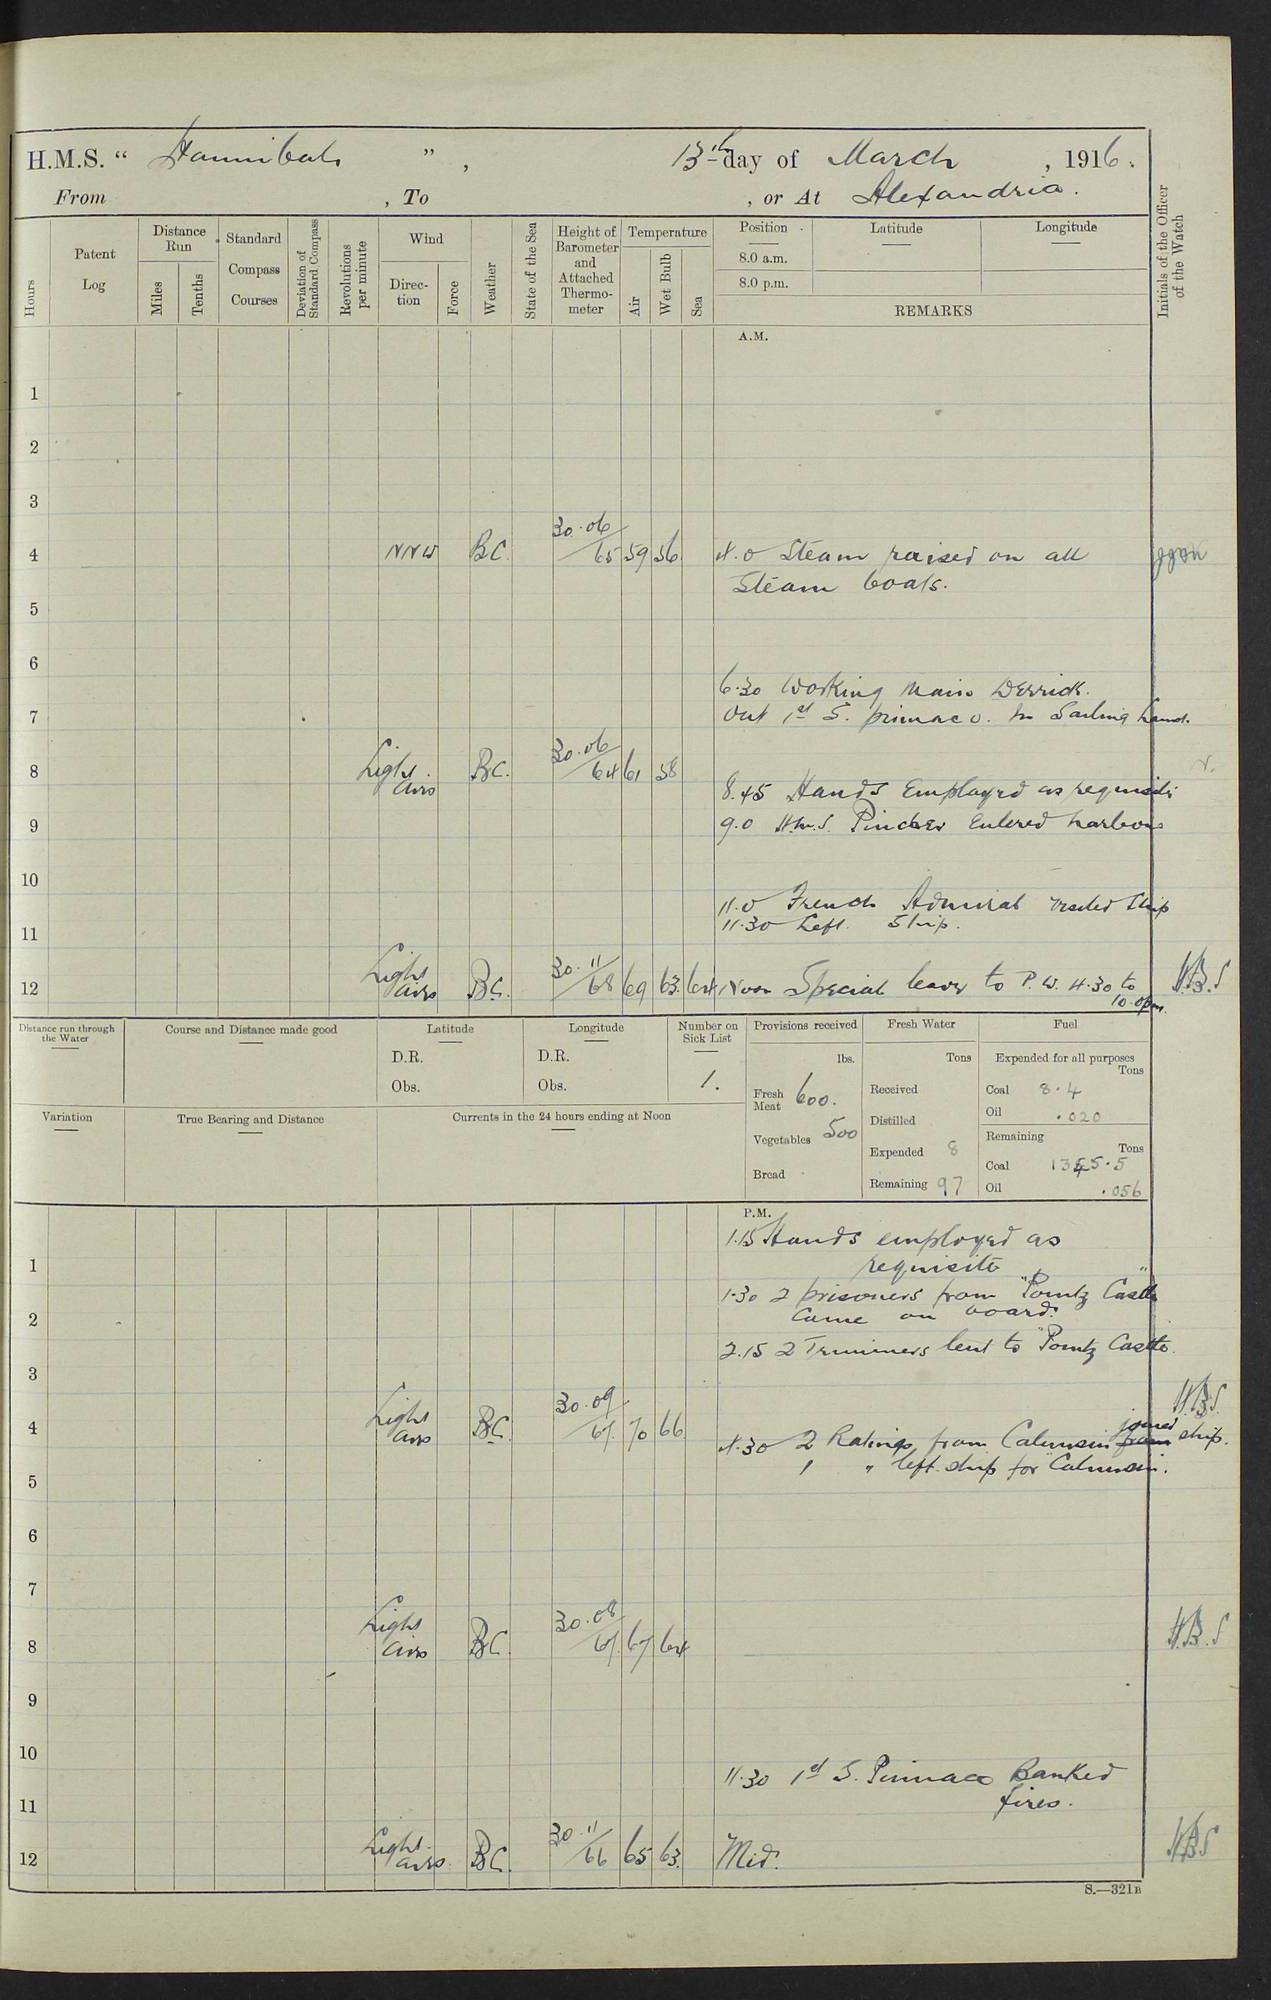 H.M.S. " Hannibal ", 13th day of March, 1916.
From , To , or At Alexandria.
Hours
Patent Log
Distance Run
Miles
Tenths
Standard Compass Courses
Deviation of Standard Compass
Revolutions per minute
Wind
Direction
Force
Weather
State of the Sea
Height of Barometer and Attached Thermometer
Temperature
Air
Wet Bulb
Sea
Position
Latitude
Longitude
8.0 a.m.
8.0 p.m.
REMARKS
Initials of the Officer of the Watch
A.M.
1
2
3
4 NNW BC. 30.06/65 59 56 4.0 Steam raised on all
Steam boats.
5
6
6.30 Working Main Derrick.
7 Out 1st S. pinnace. In Sailing Launch.
8 Light airs BC. 30.06/64 61 58
8.45 Hands Employed as requisite
9 9.0 H.M.S. Pincher Entered harbour
10
11.0 French Admiral visited Ship
11 11.30 Left Ship.
12 Light airs BC. 30.11/68 69 63. 64 Noon Special leave to P.W. 4.30 to 10.0pm. H.B.S
Distance run through the Water
Course and Distance made good
Latitude
D.R.
Obs.
Longitude
D.R.
Obs.
Number on Sick List
1.
Provisions received
lbs.
Fresh Meat 600.
Vegetables 500
Bread
Fresh Water
Tons
Received
Distilled
Expended 8
Remaining 97
Fuel
Expended for all purposes
Tons
Coal 8.4
Oil .020
Remaining
Tons
Coal 1345.5
Oil .056
Variation
True Bearing and Distance
Currents in the 24 hours ending at Noon
P.M.
1.15 Hands employed as
1 requisite
1.30 2 prisoners from "Pointz Castle"
2 Came on board.
2.15 2 Trimmers lent to "Pointz Castle.
3
4 Light airs BC. 30.09/67. 70 66 H.B.S.
4.30 2 Ratings from Calmsin joined from ship.
1 " left ship for Calmsin.
5
6
7
8 Light airs BC. 30.08/67. 67 64 H.B.S
9
10
11.30 1st S. Pinnace Banked
11 fires.
12 Light airs BC. 30.11/66 65 63. Mid. HBS
S.—321B